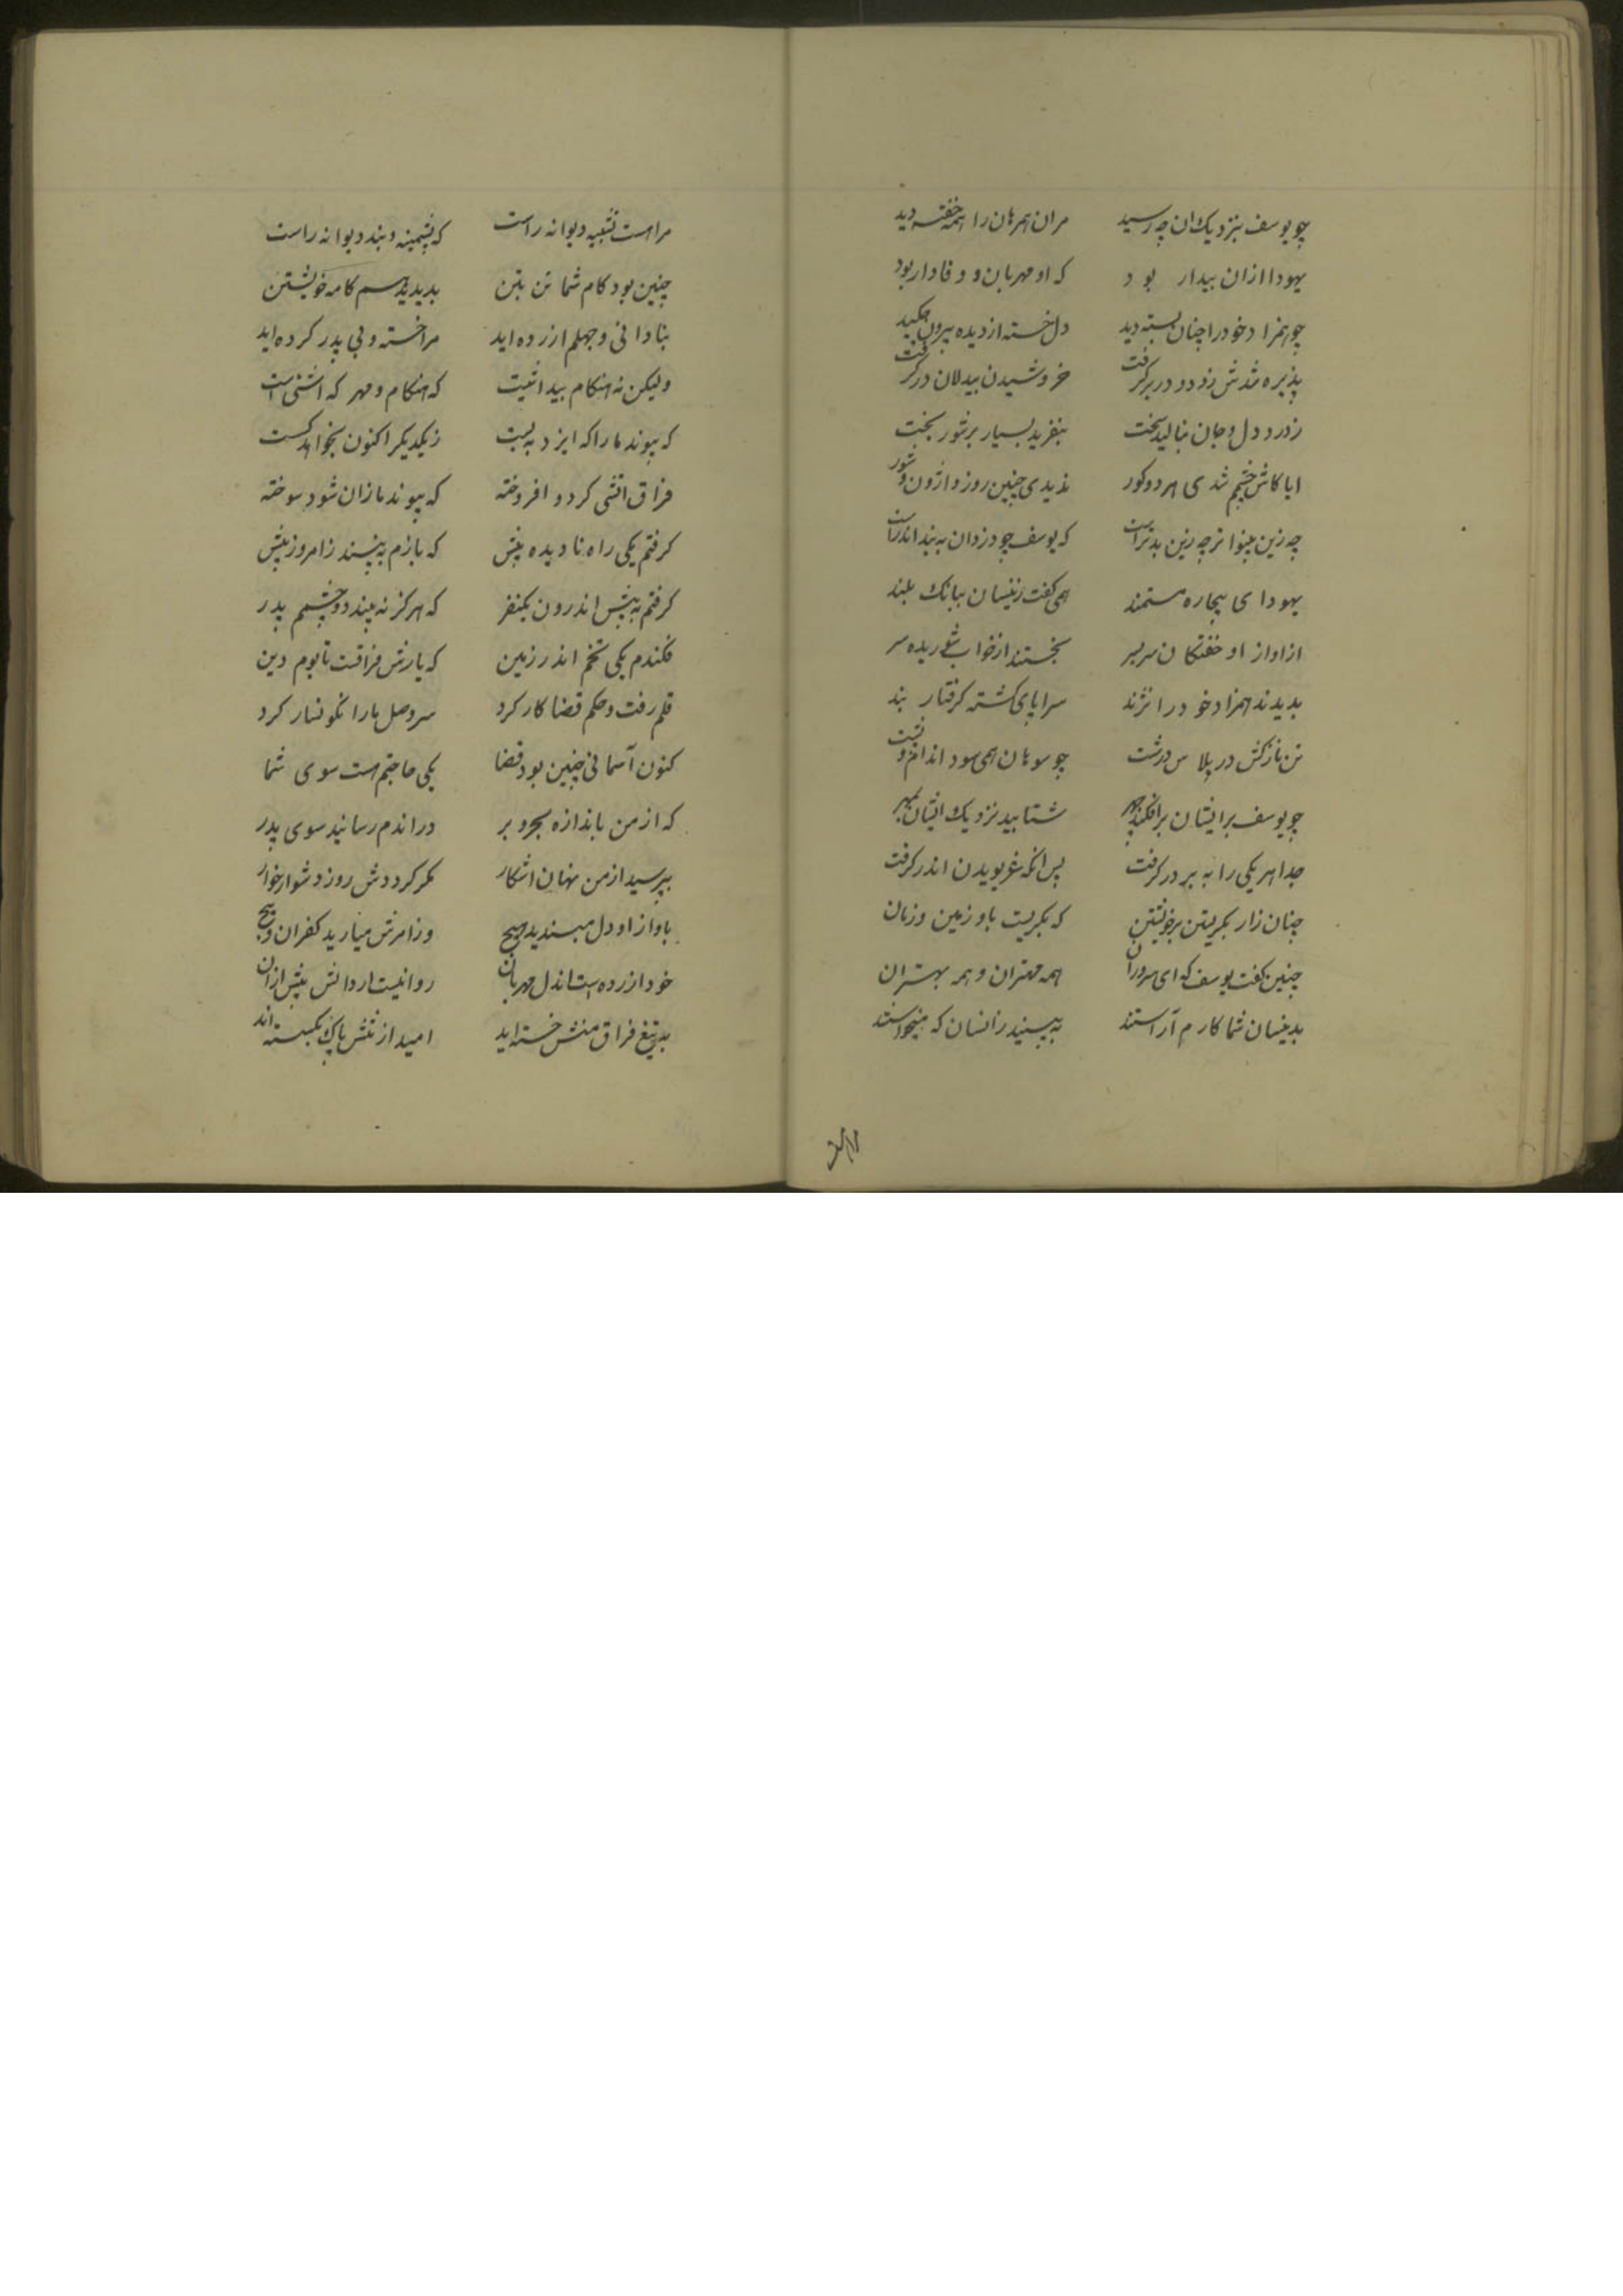 چو یوسف بنزدیک ان چه رسید مران همرهان را همه خفته دید
یهودا ازان بیدار بود که او مهربان و وفادار بود
چو همزاد خود را چنان بسته دید دل خسته از دیده بیرون چکید
پذیره شدش زود و در بر گرفت خروشیدن بیدلان در گرفت
ز درد دل و جان بنالید سخت بنفرید بسیار بر شور بخت
ایا کاش چشمم شدی هر دو کور ندیدی چنین روز واژون و شور
چه زین بینوا تر چه زین بدتر است که یوسف چو دزدان به بند اندر است
یهودای بیچاره مستمند همی گفت زینسان ببانک بلند
از اواز او خفتکان سر بسر بجستند از خواب شوریده سر
بدیدند همزاد خود را نژند سراپای کشته کرفتار بند
تن نازکش در پلاس درشت چو سوهان همی سود اندام و پشت
چو یوسف بر ایشان بر افکند چهر شتابید نزدیک ایشان بمهر
جدا هر یکی را به بر در کرفت پس انکه غریویدن اندر کرفت
چنان زار بکریستن بر خویشتن که بکریست باو زمین و زمان
چنین کفت یوسف که ای سروران همه مهتران و همه بهتران
بدینسان شما کارم آراستند به بیسند زانسان که میخواستند
مرا هست تشبیه دیوانه راست که پشمینه و بند دیوانه راست
چنین بود کام شما تن بتن بدیدید هم کامه خویشتن
بنادانی و جهلم ازرده اید مرا خسته و بی پدر کرده اید
ولیکن نه هنکام بیداشیت که هنکام و مهر که اشتی است
که پیوند ما را که ایزد به بست ز یکدیکر اکنون بخواهد کست
فراق اتشی کرد و افروخته که پیوند ما زان شود سوخته
کرفتم یکی راه نادیده پیش که بازم به بینند ز امروز بیش
کرفتم به پیش اندرون یکنفر که هرکز نه بیند دو چشمم پدر
فکندم یکی تخم اندر زمین که بارش فراقت تا یوم دین
قلم رفت و حکم قضا کار کرد سر وصل ما را نکونسار کرد
کنون آسمانی چنین بود قضا یکی حاجتم هست سوی شما
که از من باندازه بحر و بر در اندم رسانید سوی پدر
بپرسید از من نهان اشکار مکر کرددش روز دشوار خوار
باواز او دل مبندید هیچ وز امرش میارید کفران و پیچ
خود ازرده است اندل مهربان روا نیست ازردانش بیش ازان
به تیغ فراق منش خسته اید امید از تنش پاک بکسسته اند